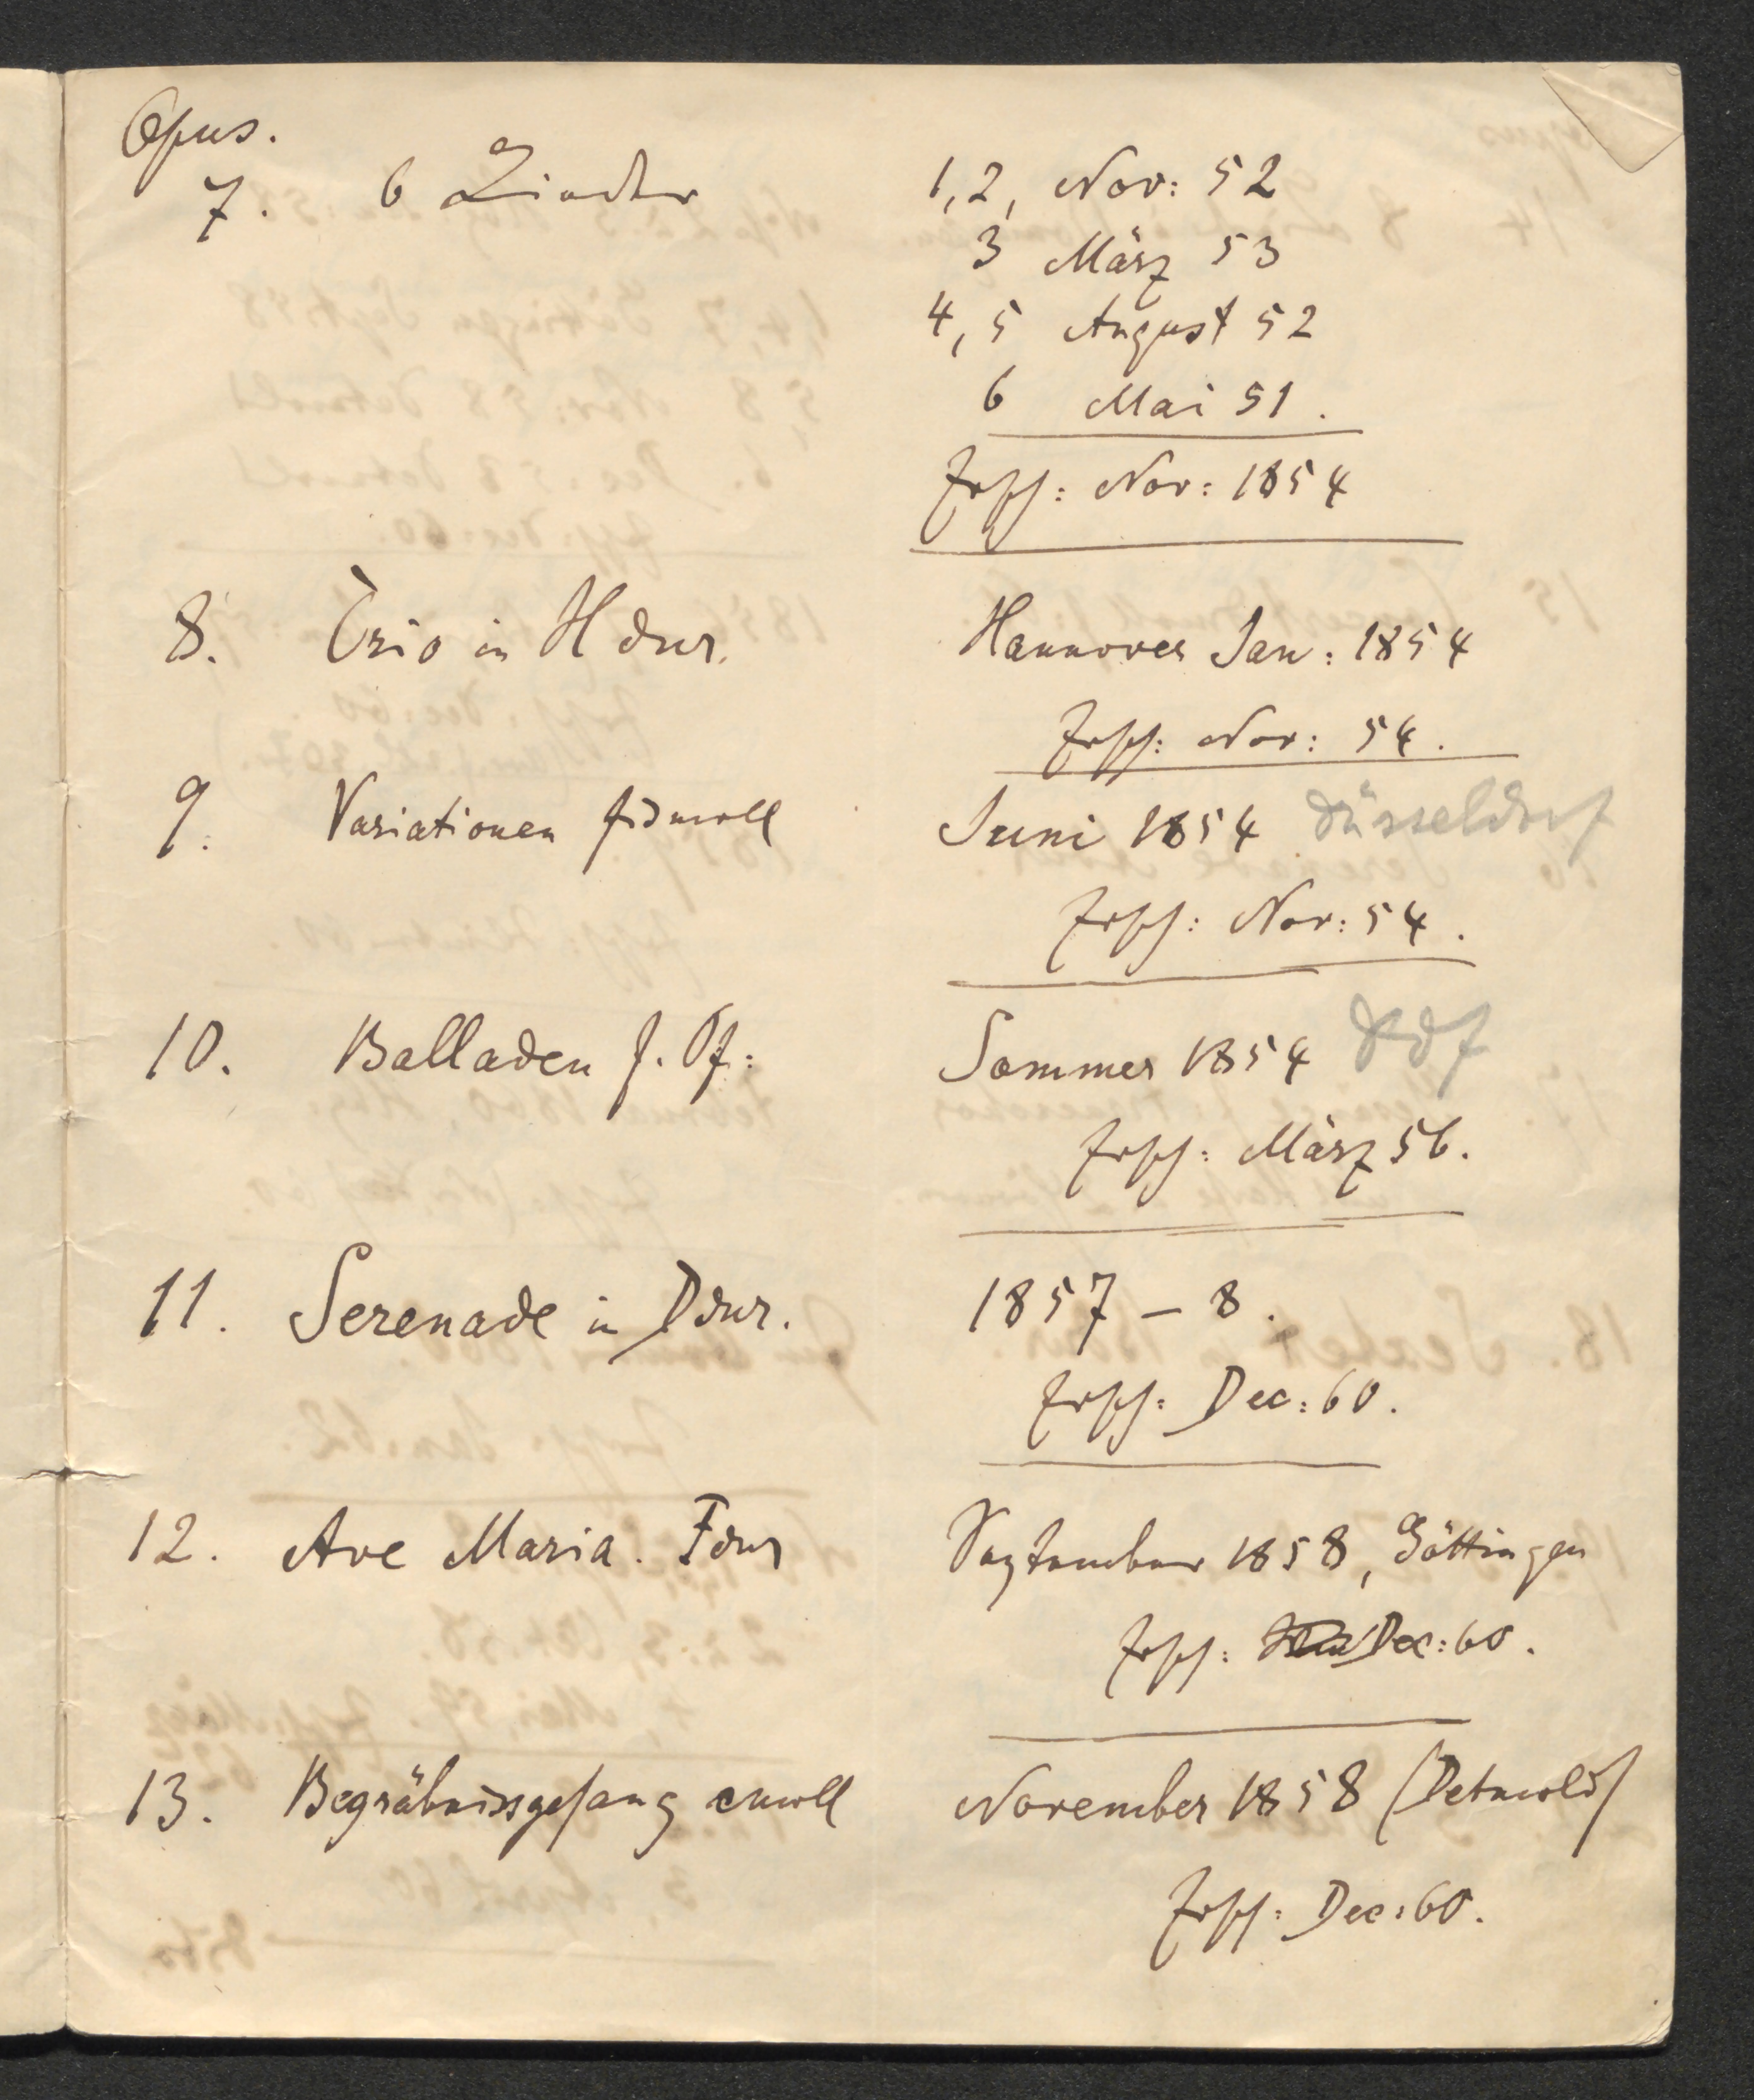 Opus.
7. 6 Lieder 1,2, Nov: 52
3 März 53
4, 5 August 52
6 Mai 51.
Ersch: Nov: 1854
8. Trio in H dur. Hannover Jan: 1854
Ersch: Nov: 54.
9. Variationen fis moll Juni 1854 Düsseldorf
Ersch: Nov: 54.
10. Balladen f. Pf: Sommer 1854 Ddf
Ersch: März 56.
11. Serenade in D dur. 1857 – 8.
Ersch: Dec: 60.
12. Ave Maria. F dur September 1858, Göttingen
Ersch: Dec: 60.
13. Begräbnissgesang c moll November 1858 (Detmold)
Ersch: Dec: 60.